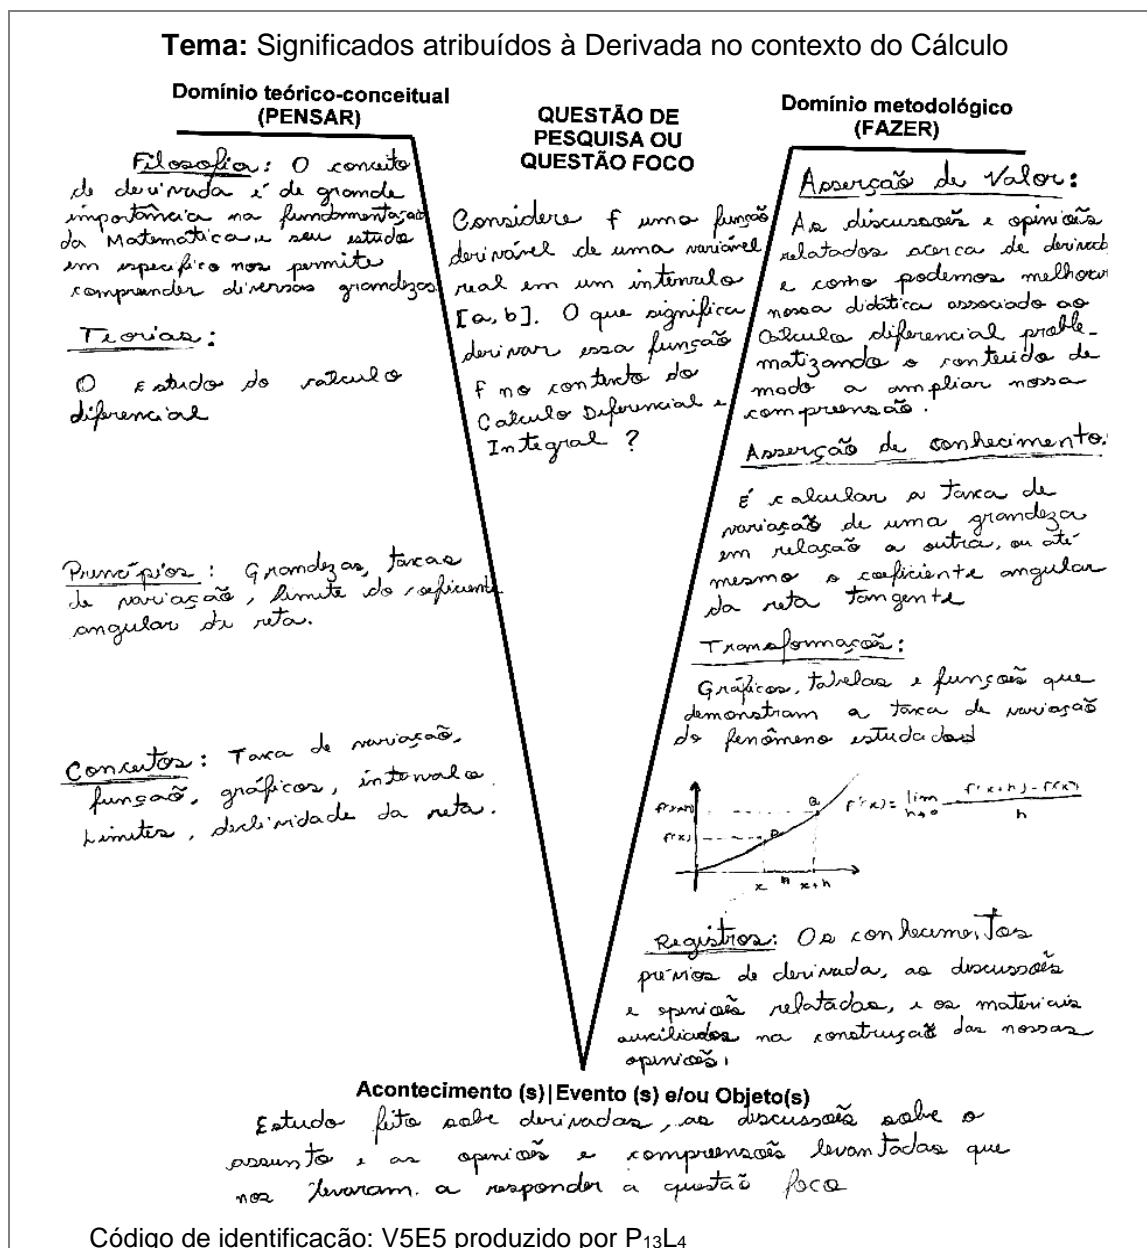 Tema: Significados atribuídos à Derivada no contexto do Cálculo
Domínio teórico-conceitual
(PENSAR)
Filosofia: O conceito
de derivada é de grande
importância na fundamentação
da Matemática e seu estudo
em especifico nos permite
compreender diversas grandezas
Teorias:
O Estudo do calculo
diferencial
Princípios: Grandezas, taxas
de variação, limite do coeficiente
angular de reta.
Conceitos: Taxa de variação,
função, gráficos, intervalo
Limites, declividade da reta.
QUESTÃO DE
PESQUISA OU
QUESTÃO FOCO
Considere f uma função
derivável de uma variável
real em um intervalo
[a, b]. O que significa
derivar essa função
f no contexto do
Calculo Diferencial e
Integral ?
Domínio metodológico
(FAZER)
Asserção de Valor:
As discussões e opiniões
relatados acerca de derivad
e como podemos melhorar
nossa didática associado ao
Calculo diferencial proble-
matizando o conteúdo de
modo a ampliar nossa
compreensão.
Asserção de conhecimento:
É calcular a taxa de
variação de uma grandeza
em relação a outra, ou até
mesmo o coeficiente angular
da reta tangente
Transformações:
Gráficos, tabelas e funções que
demonstram a taxa de variação
do fenômeno estudado
f(x+h)
f(x)
P
Q
x h x+h
f'(x) = lim h→0 f(x+h) - f(x) / h
Registros: Os conhecimentos
prévios de derivada, as discussões
e opiniões relatadas, e os materiais
auxiliados na construção das nossas
opiniões,
Acontecimento (s)|Evento (s) e/ou Objeto(s)
Estudo feito sobe derivadas, as discussões sobe o
assunto e as opniões e compreensões levantadas que
nos levaram. a responder a questão foco
Código de identificação: V5E5 produzido por P13L4